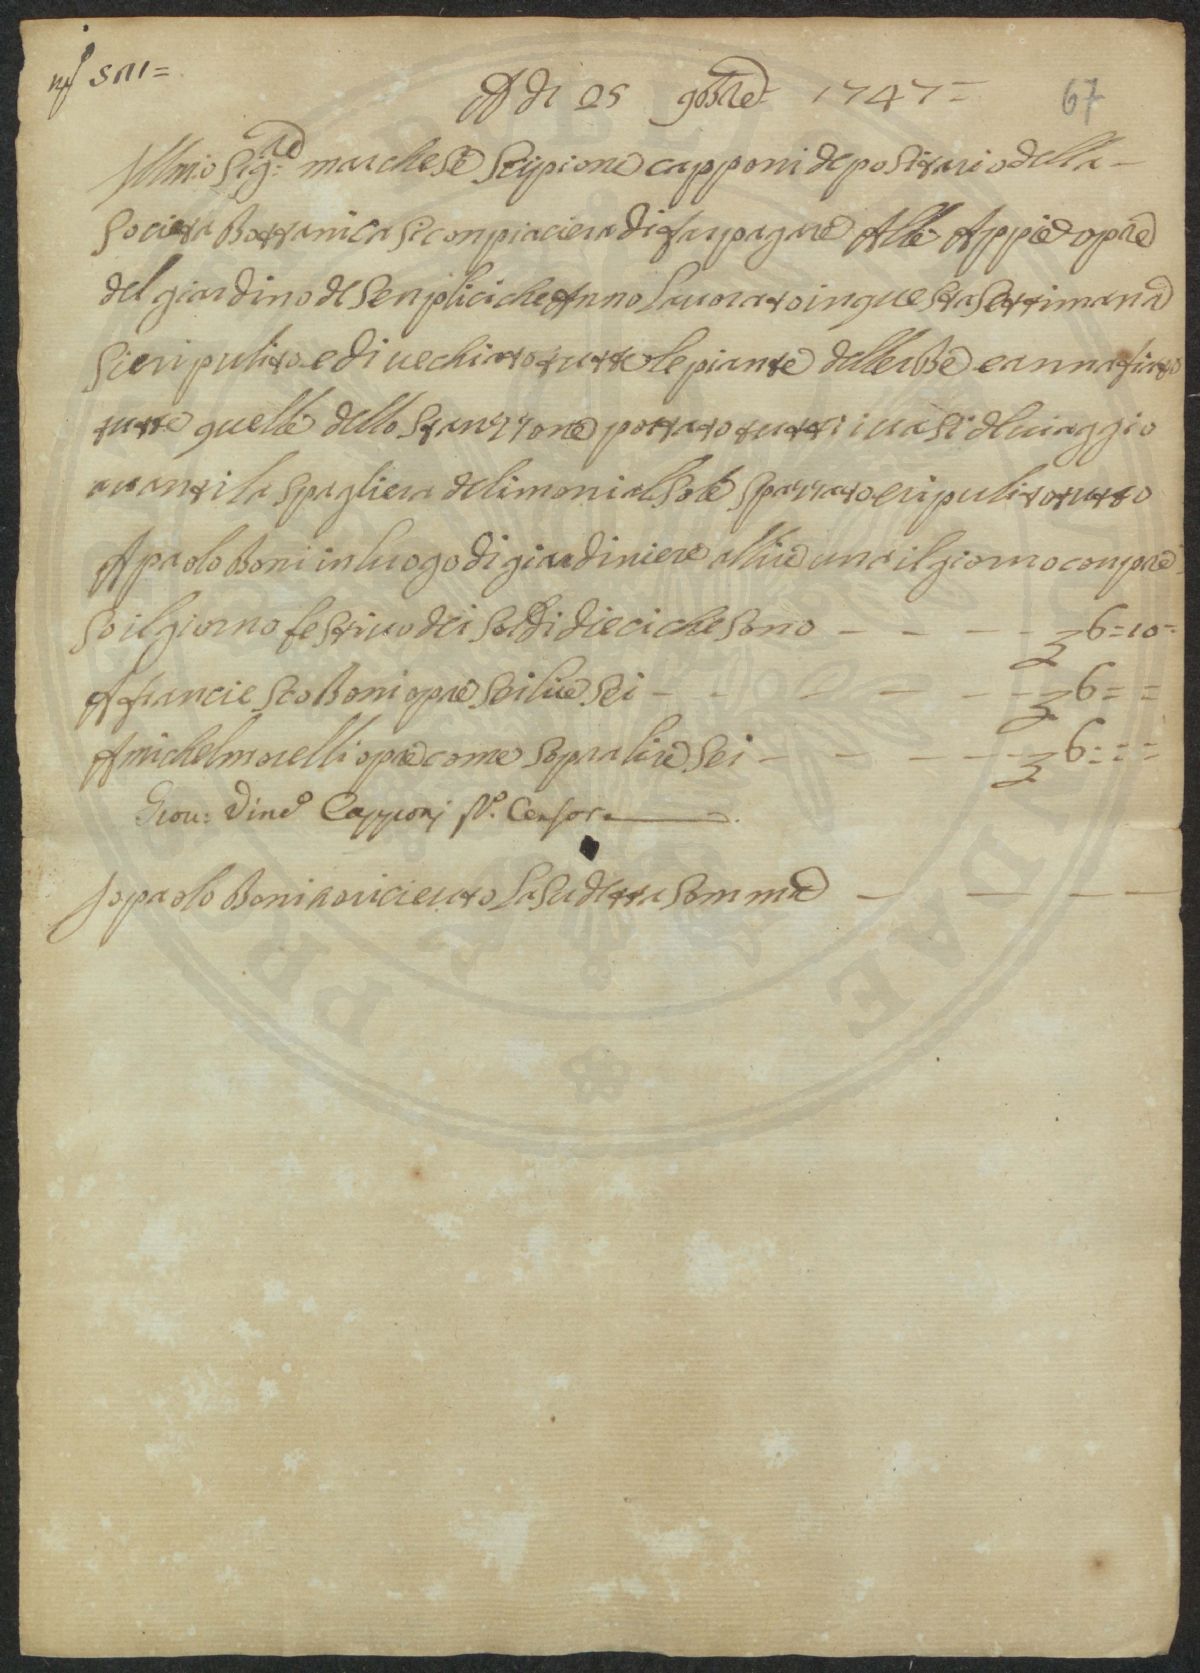 A di 25 9bre 1747=
67
Illmo Sig:re marchese Scipione capponi depositario della
Societa Bottanica si conpiaciera di far pagare Alle Appie opre
del giardino de Senplici che Anno Lauorato in questa Settimana
Si e ripulito e di uechiato tutte le piante dellerbe e annafiato
tutte quelle dello Stanzzone portato tutti i uasi del uiaggio
auanti la Spagliera de limoni al Sole Spazzato e ripulito tutto
A paolo Boni in luogo di giardiniere allire una il giorno conpre
So il giorno festiuo dei Soldi dieci che Sono — — — — 6=10=
A francie Sco Boni opre Sei lire Sei — — — — — 6= =
A michel morelli opre come Sopra lire Sei — — — — 6= = =
Giou: Vinc.o Capponj P.o Censore
Io paolo Boni o riceuto La Sudetta Somma — — — —